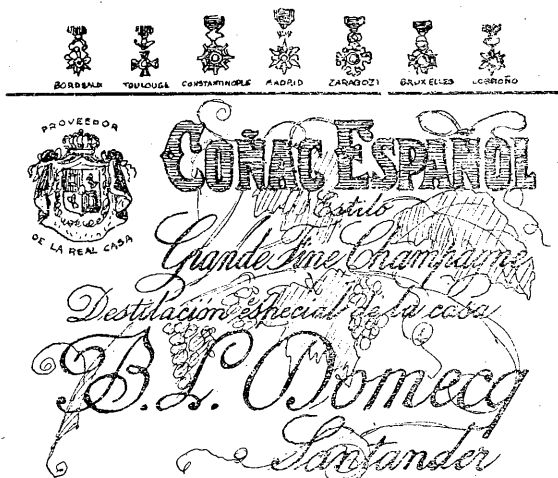 BORDEAUX TOULOUSE CONSTANTINOPLE MADRID ZARAGOZI BRUXELLES LOGROÑO
PROVEEDOR
DE LA REAL CASA
COÑAC ESPAÑOL
Estilo
Grande Fine Champagne
Destilación especial de la casa
B. L. Domecq
Santander